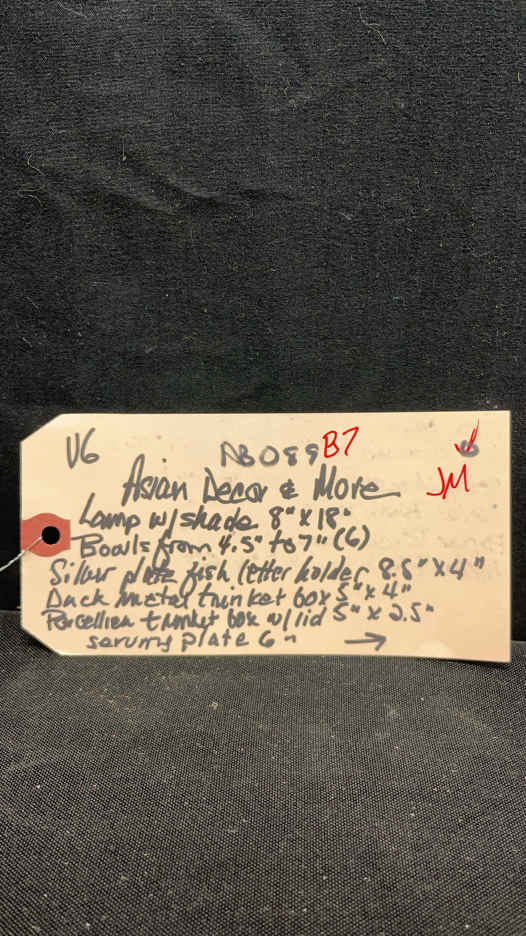 V6 NB089 B7
JM
Asian Decor & More
Lamp w/shade 8" x 18"
Bowls from 4.5" to 7" (6)
Silver plate fish letter holder 8.5" x 4"
Duck metal trinket box 5" x 4"
Porcellien trinket box w/lid 5" x 2.5"
serving plate 6" →